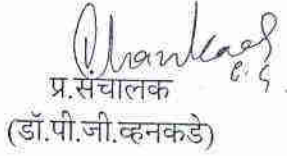 प्र.संचालक
(डॉ.पी.जी.व्हनकडे)